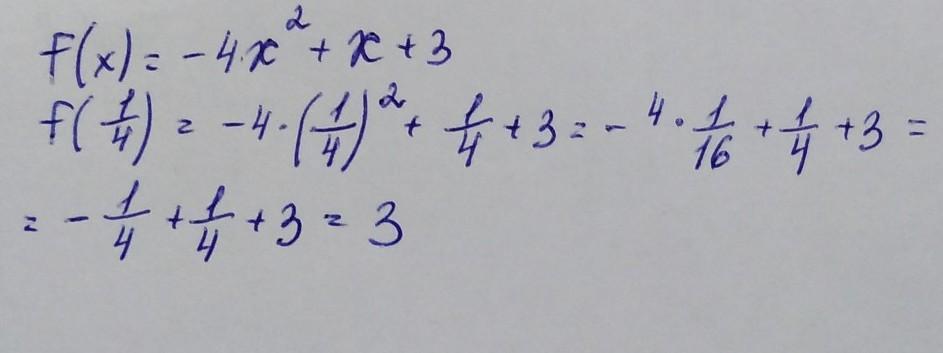 f(x) = -4x² + x + 3
f(1/4) = -4·(1/4)² + 1/4 + 3 = -4·1/16 + 1/4 + 3 =
= -1/4 + 1/4 + 3 = 3